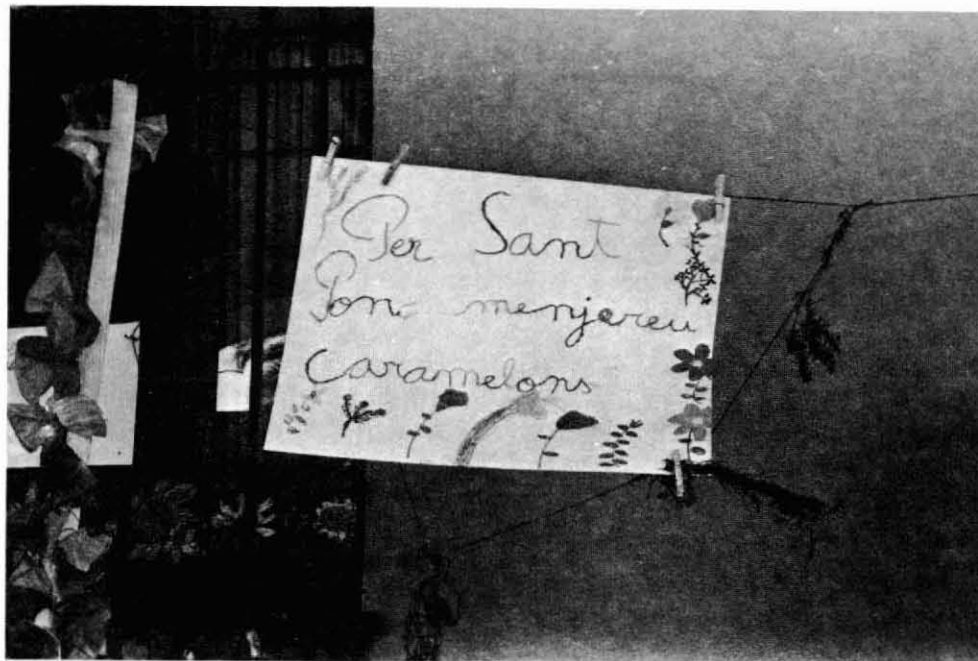 Per Sant
Pon- menjereu
caramelons